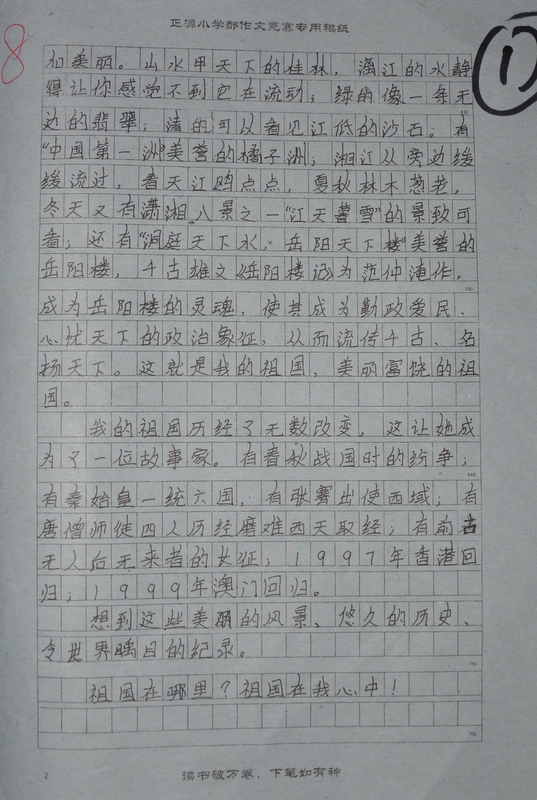 正源小学部作文竞赛专用稿纸
8
1
和美丽。山水甲天下的桂林，漓江的水静
得让你感觉不到它在流动；绿的像一条无
边的翡翠；清的可以看见江低的沙石。有
“中国第一洲”美誉的橘子洲；湘江从旁边缓
缓流过，春天江鸥点点，夏秋林木葱茏，
冬天又有潇湘八景之一“江天暮雪”的景致可
看；还有“洞庭天下水，岳阳天下楼”美誉的
岳阳楼，千古雄文《岳阳楼记》为范仲淹作，
成为岳阳楼的灵魂，使其成为勤政爱民、
心忧天下的政治象征，从而流传千古、名
扬天下。这就是我的祖国，美丽富饶的祖
国。
我的祖国历经了无数改变，这让她成
为了一位故事家。有春秋战国时的纷争；
有秦始皇一统六国，有张骞出使西域；有
唐僧师徒四人历经磨难西天取经；有前古
无人后无来者的长征；1997年香港回
归；1999年澳门回归。
想到这些美丽的风景、悠久的历史、
令世界瞩目的纪录。
祖国在哪里？祖国在我心中！
2
读书破万卷，下笔如有神